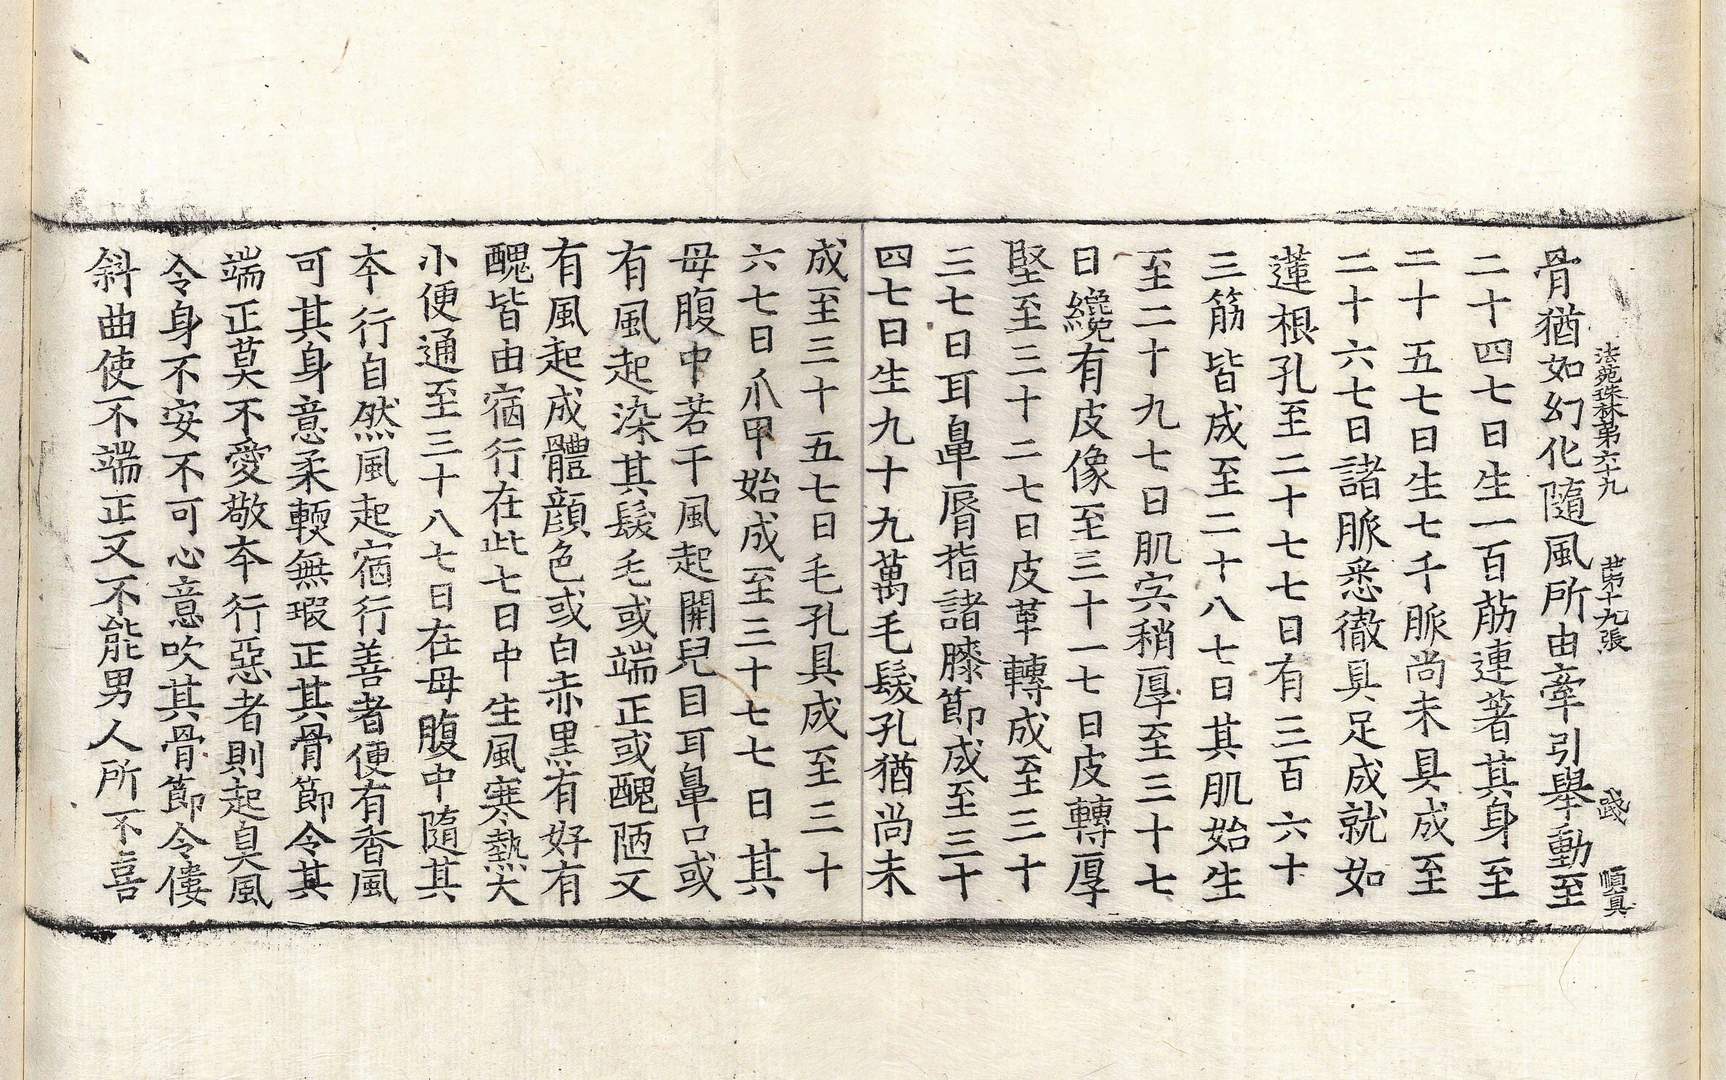 法苑珠林第六十九 第十九張 踐 順真
骨猶如幻化隨風所由牽引舉動至
二十四七日生一百筋連著其身至
二十五七日生七千脈尚未具成至
二十六七日諸脈悉徹具足成就如
蓮根孔至二十七七日有三百六十
三筋皆成至二十八七日其肌始生
至二十九七日肌宍稍厚至三十七
日纔有皮像至三十一七日皮轉厚
堅至三十二七日皮革轉成至三十
三七日耳鼻脣指諸膝節成至三十
四七日生九十九萬毛髮孔猶尚未
成至三十五七日毛孔具成至三十
六七日爪甲始成至三十七七日其
母腹中若干風起開兒目耳鼻口或
有風起染其髮毛或端正或醜陋又
有風起成體顏色或白赤黑有好有
醜皆由宿行在此七日中生風寒熱大
小便通至三十八七日在母腹中隨其
本行自然風起宿行善者便有香風
可其身意柔輭無瑕正其骨節令其
端正莫不愛敬本行惡者則起臭風
令身不安不可心意吹其骨節令僂
斜曲使不端正又不能男人所不喜